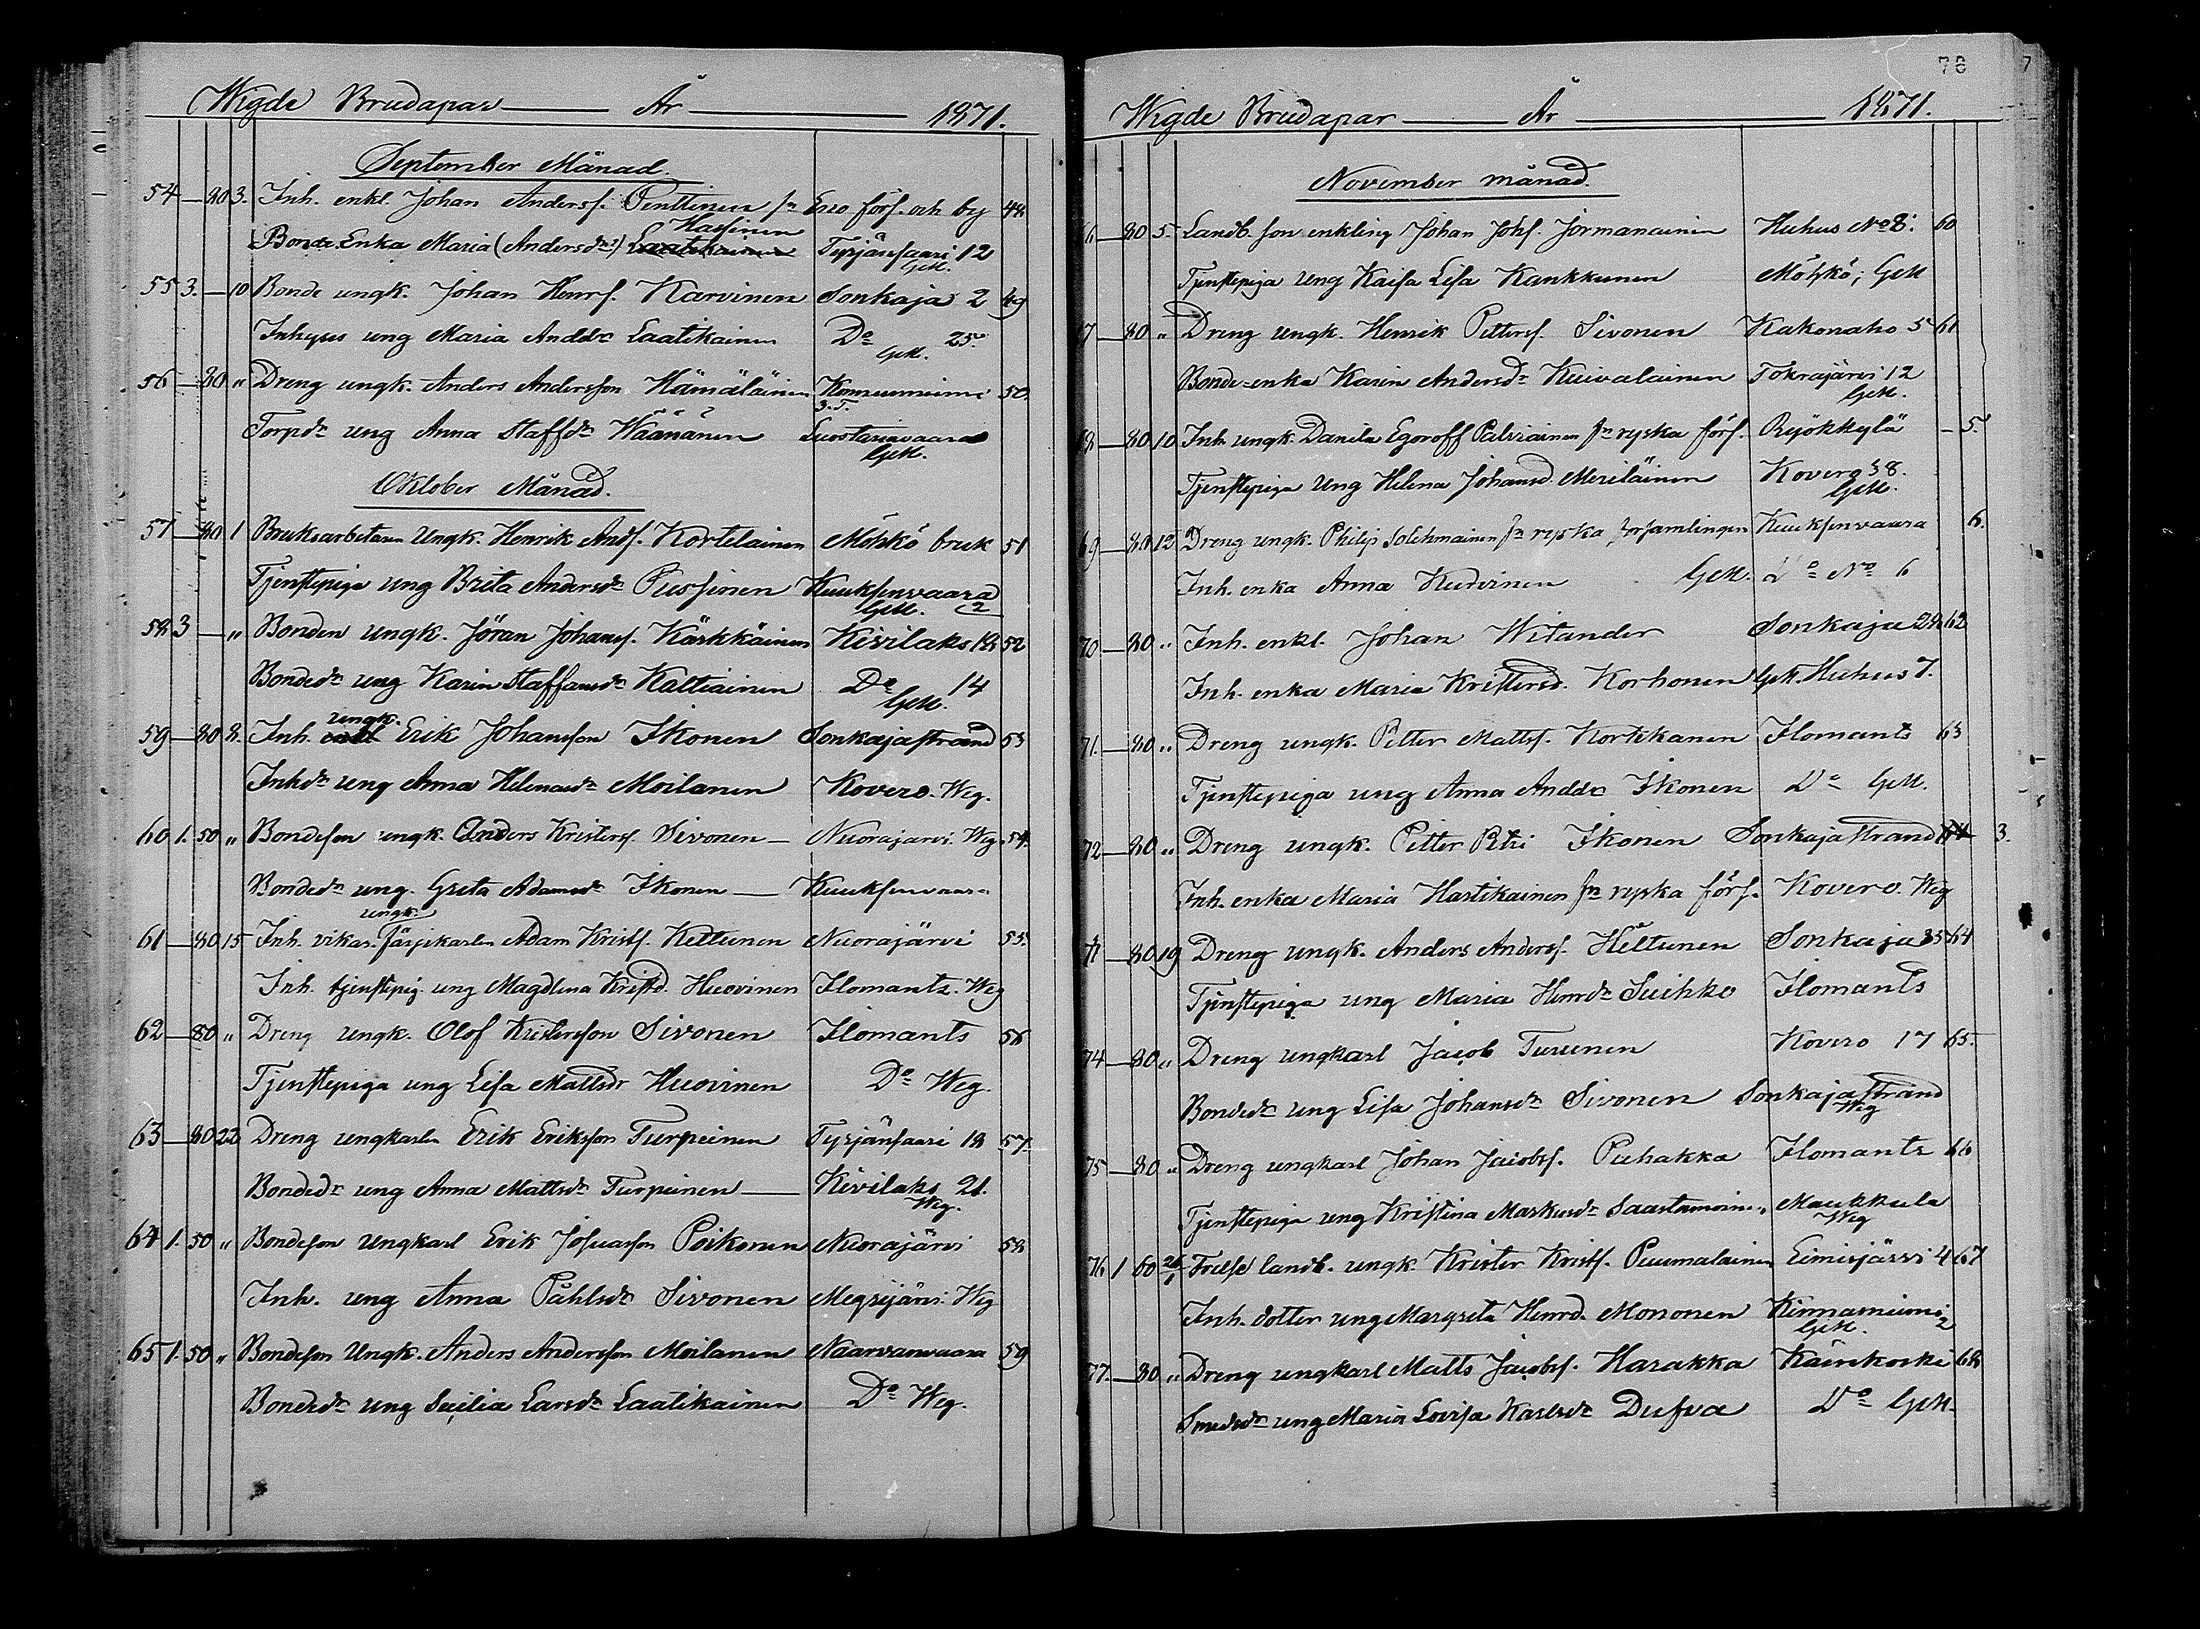 Wigde Brudapar År 1871.
September Månad.
54 — 80 3. Inh. enkl. Johan Anderss. Penttinen fn Eno förs. och by 48
Hassinen
Bonde Enka Maria (Andersdr) Laatikainen Tyrjänsaari 12
GeM.
55 3. — 10 Bonde ungk. Johan Henrs. Karvinen Sonkaja 2 49
Inhyses ung Maria Anddr Laatikainen Do 25.
GeM.
56 — 80 " Dreng ungk. Anders Andersson Hämäläinen Konnunniemi 50.
3. T.
Torpdr ung Anna Staffdr Wäänänen Luostarinvaara
GeM.
Oktober Månad.
57 — 80 1 Bruksarbetaren Ungk. Henrik Ands. Kortelainen Möhkö bruk 51
Tjenstepiga ung Brita Andersdr Pussinen Kuuksenvaara
GeM. 2
58 3 — " Bonden ungk. Jöran Johanss. Kärkkäinen Kivilaks 18 52
Bondedr ung Karin Staffansdr Kattiainen Do 14
GeM.
ungk.
59 — 80 8. Inh. enkl Erik Johansson Ikonen Sonkajastrand 53
Inhdr ung Anna Helenasdr Moilanen Kovero. Weg.
60 1. 50 " Bondeson ungk. Anders Kristers. Sivonen — Nuorajärvi. Weg. 54.
Bondedr ung. Greta Adamsdr Ikonen — Kuuksenvaara
ungk.
61 — 80 15 Inh. vikar. färjekarlen Adam Krists. Kettunen Nuorajärvi 55.
Inh. tjenstepig. ung Magdlena Kristd. Huovinen Ilomants. Weg
62 — 80 " Dreng ungk. Olof Kristersson Sivonen Ilomants 56
Tjenstepiga ung Lisa Mattsdr Huovinen Do Weg.
63 — 80 22 Dreng ungkarlen Erik Eriksson Turpeinen Tyrjänsaari 18 57.
Bondedr ung Anna Mattsdr Turpeinen — Kivilaks 21.
Weg.
64 1. 50 " Bondeson Ungkarl Erik Josuasson Poikonen Nuorajärvi 58
Inh. ung Anna Påhlsdr Sivonen Megrijärvi. Weg
65 1. 50 " Bondeson Ungk. Anders Andersson Moilanen Naarvanvaara 59
Bondedr ung Seçilia Larsdr Laatikainen Do Weg.
78
Wigde Brudapar År 1871.
November månad.
6 — 80 5. Landb. son enkling Johan Johs. Jormanainen Huhus No 8. 60
Tjenstepiga Ung Kaisa Lisa Kankkunen Möhkö; GeM
7 — 80 " Dreng ungk. Henrik Petterss. Sivonen Kakonaho 5 61
Bonde-enka Karin Andersdr Kuivalainen Tokrajärvi 12
GeM.
68 — 80 10 Inh. ungk. Danila Egoroff Palviainen fn ryska förs. Ryökkylä — 5.
Tjenstepiga Ung Helena Johansd. Meriläinen Kovero 38.
GeM.
69 — 80 12 Dreng ungk. Philip Solehmainen fn ryska församlingen Kuuksenvaara 6.
Inh. enka Anna Kurvinen GeM. Do No 6
70 — 80 " Inh. enkl. Johan Witander Sonkaja 28 62
Inh. enka Maria Kristersd. Korhonen GeM. Huhus 7.
71. — 80 " Dreng ungk. Petter Matts. Kortkanen Ilomants 63
Tjenstepiga ung Anna Anddr Ikonen Do GeM.
72 — 80 " Dreng ungk. Petter Petri Ikonen Sonkajastrand 64 3.
Inh. enka Maria Hartikainen fn ryska förs. Kovero. Weg
— 80 19 Dreng ungk. Anders Anderss. Kettunen Sonkaja 35 64
Tjenstepiga ung Maria Henrdr Suihko Ilomants
74 — 80 " Dreng ungkarl Jacob Turunen Kovero 17 65.
Bondedr ung Lisa Johansdr Sivonen Sonkajastrand
Weg
75 — 80 " Dreng ungkarl Johan Jacobss. Puhakka Ilomants 66
Tjenstepiga ung Kristina Markusdr Saastamoinen Maukkula
Weg
76 1 60 26 Frelse landb. ungk. Krister Krists. Puumalainen Eimisjärvi 4 67
Inh. dotter ung Margreta Henrd. Mononen Kinnarniemi
GeM. 2
77. — 80 " Dreng ungkarl Matts Jacobss. Harakka Käenkoski 68
Smedsdr ung Maria Lovisa Karlsdr Dufva Do GeM.